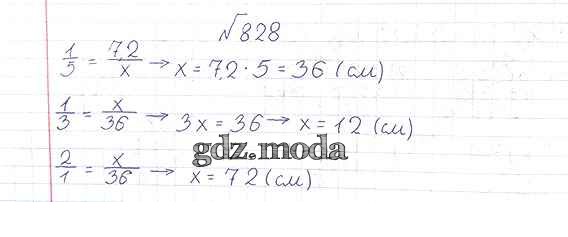 №828
1/5 = 7,2/x → x = 7,2 · 5 = 36 (см)
1/3 = x/36 → 3x = 36 → x = 12 (см)
gdz.moda
2/1 = x/36 → x = 72 (см)